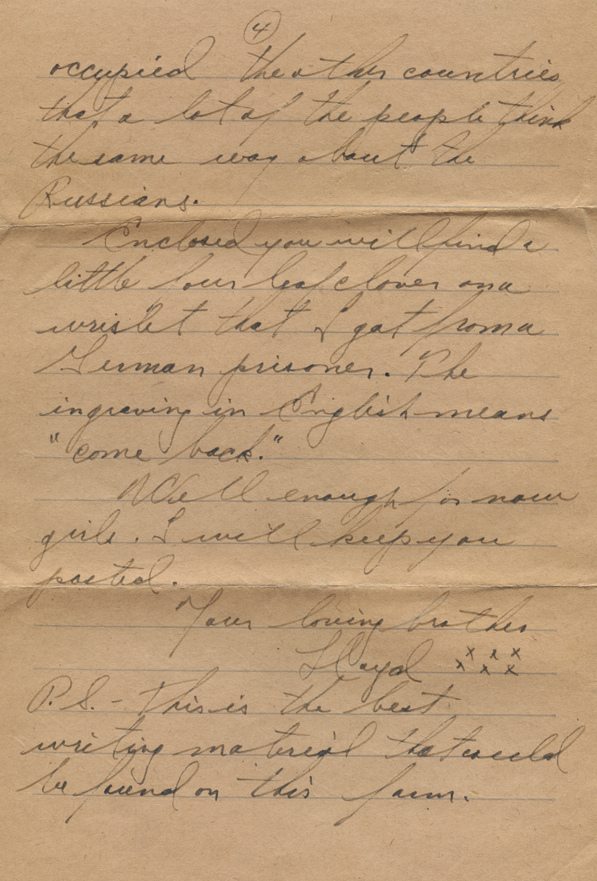 4
occupied the other countries
that a lot of the people think
the same way about the
Russians.
Enclosed you will find a
little four leaf clover on a
wrislet that I got from a
German prisoner. The
ingraving in English means
"come back."
Well enough for now
girls. I will keep you
posted.
Your loving brother
Lloyd xxx
xxx
P.S. - This is the best
writing material that could
be found on this farm.